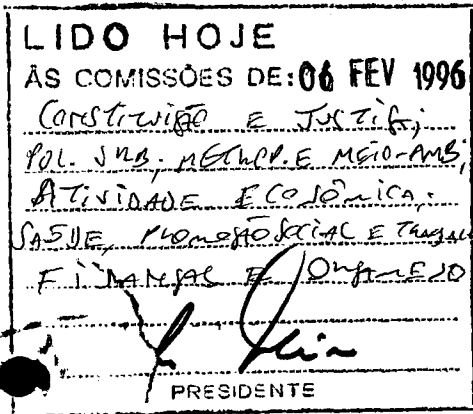 LIDO HOJE
ÀS COMISSÕES DE: 06 FEV 1996
Constituição E Justiça;
POL. URB., METROP. E MEIO-AMB;
ATIVIDADE ECONÔMICA;
SAÚDE, Promoção Social E
FINANÇAS E Orçamento
PRESIDENTE